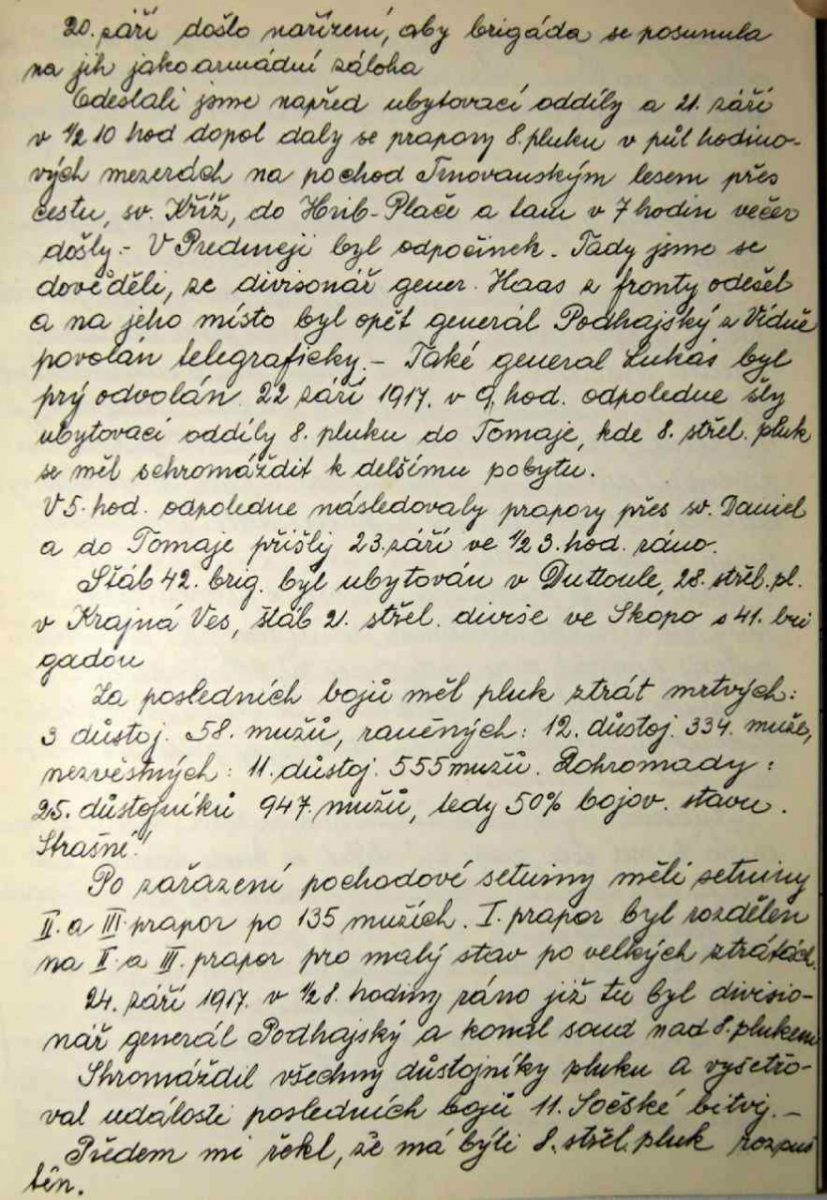 20. září došlo nařízení, aby brigáda se posunula
na jih jako armádní záloha
Odeslali jsme napřed ubytovací oddíly a 21. září
v 1/2 10 hod dopol daly se prapory 8. pluku v půl hodino-
vých mezerách na pochod Trnovanským lesem přes
cestu, sv. Kříž, do Hrib-Plače a tam v 7 hodin večer
došly.- V Predmeji byl odpočinek. Tady jsme se
dověděli, že divisonář gener. Haas z fronty odešel
a na jeho místo byl opět generál Podhajský z Vídně
povolán telegraficky.- Také general Lukáš byl
prý odvolán. 22 září 1917. v 9 hod. odpoledne šly
ubytovací oddíly 8. pluku do Tomaje, kde 8. střel. pluk
se měl schromáždit k delšímu pobytu.
V 5. hod. odpoledne následovaly prapory přes sv. Daniel
a do Tomaje přišly 23. září ve 1/2 3. hod. ráno.
Štáb 42. brig. byl ubytován v Duttoule, 28. střel. pl.
v Krajná Ves, štáb 21. střel. divise ve Skopo s 41. bri
gadou
Za posledních bojů měl pluk ztrát mrtvých:
3 důstoj. 58. mužů, raněných: 12. důstoj. 334. muže,
nezvěstných: 11. důstoj. 555 mužů. Dohromady:
25. důstojníků 947. mužů, tedy 50% bojov. stavu.
Strašné!
Po zařazení pochodové setniny měli setniny
II. a III. prapor po 135 mužích. I. prapor byl rozdělen
na II. a III. prapor pro malý stav po velkých ztrátách.
24. září 1917. v 1/2 8. hodiny ráno již tu byl divisio-
nář generál Podhajský a konal soud nad 8. plukem
Shromáždil všechny důstojníky pluku a vyšetřo-
val události posledních bojů 11. Sočské bitvy.-
Předem mi řekl, že má býti 8. střel. pluk rozpuš
těn.